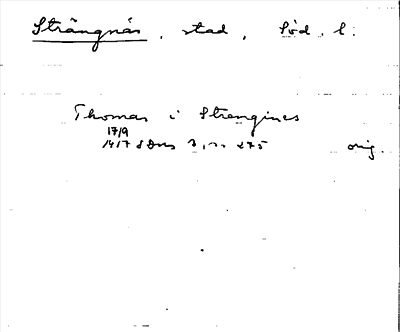 Strängnäs, stad, Söd. l.
Thomas i Strengines
17/9
1417 SDns 3, s. 275 orig.